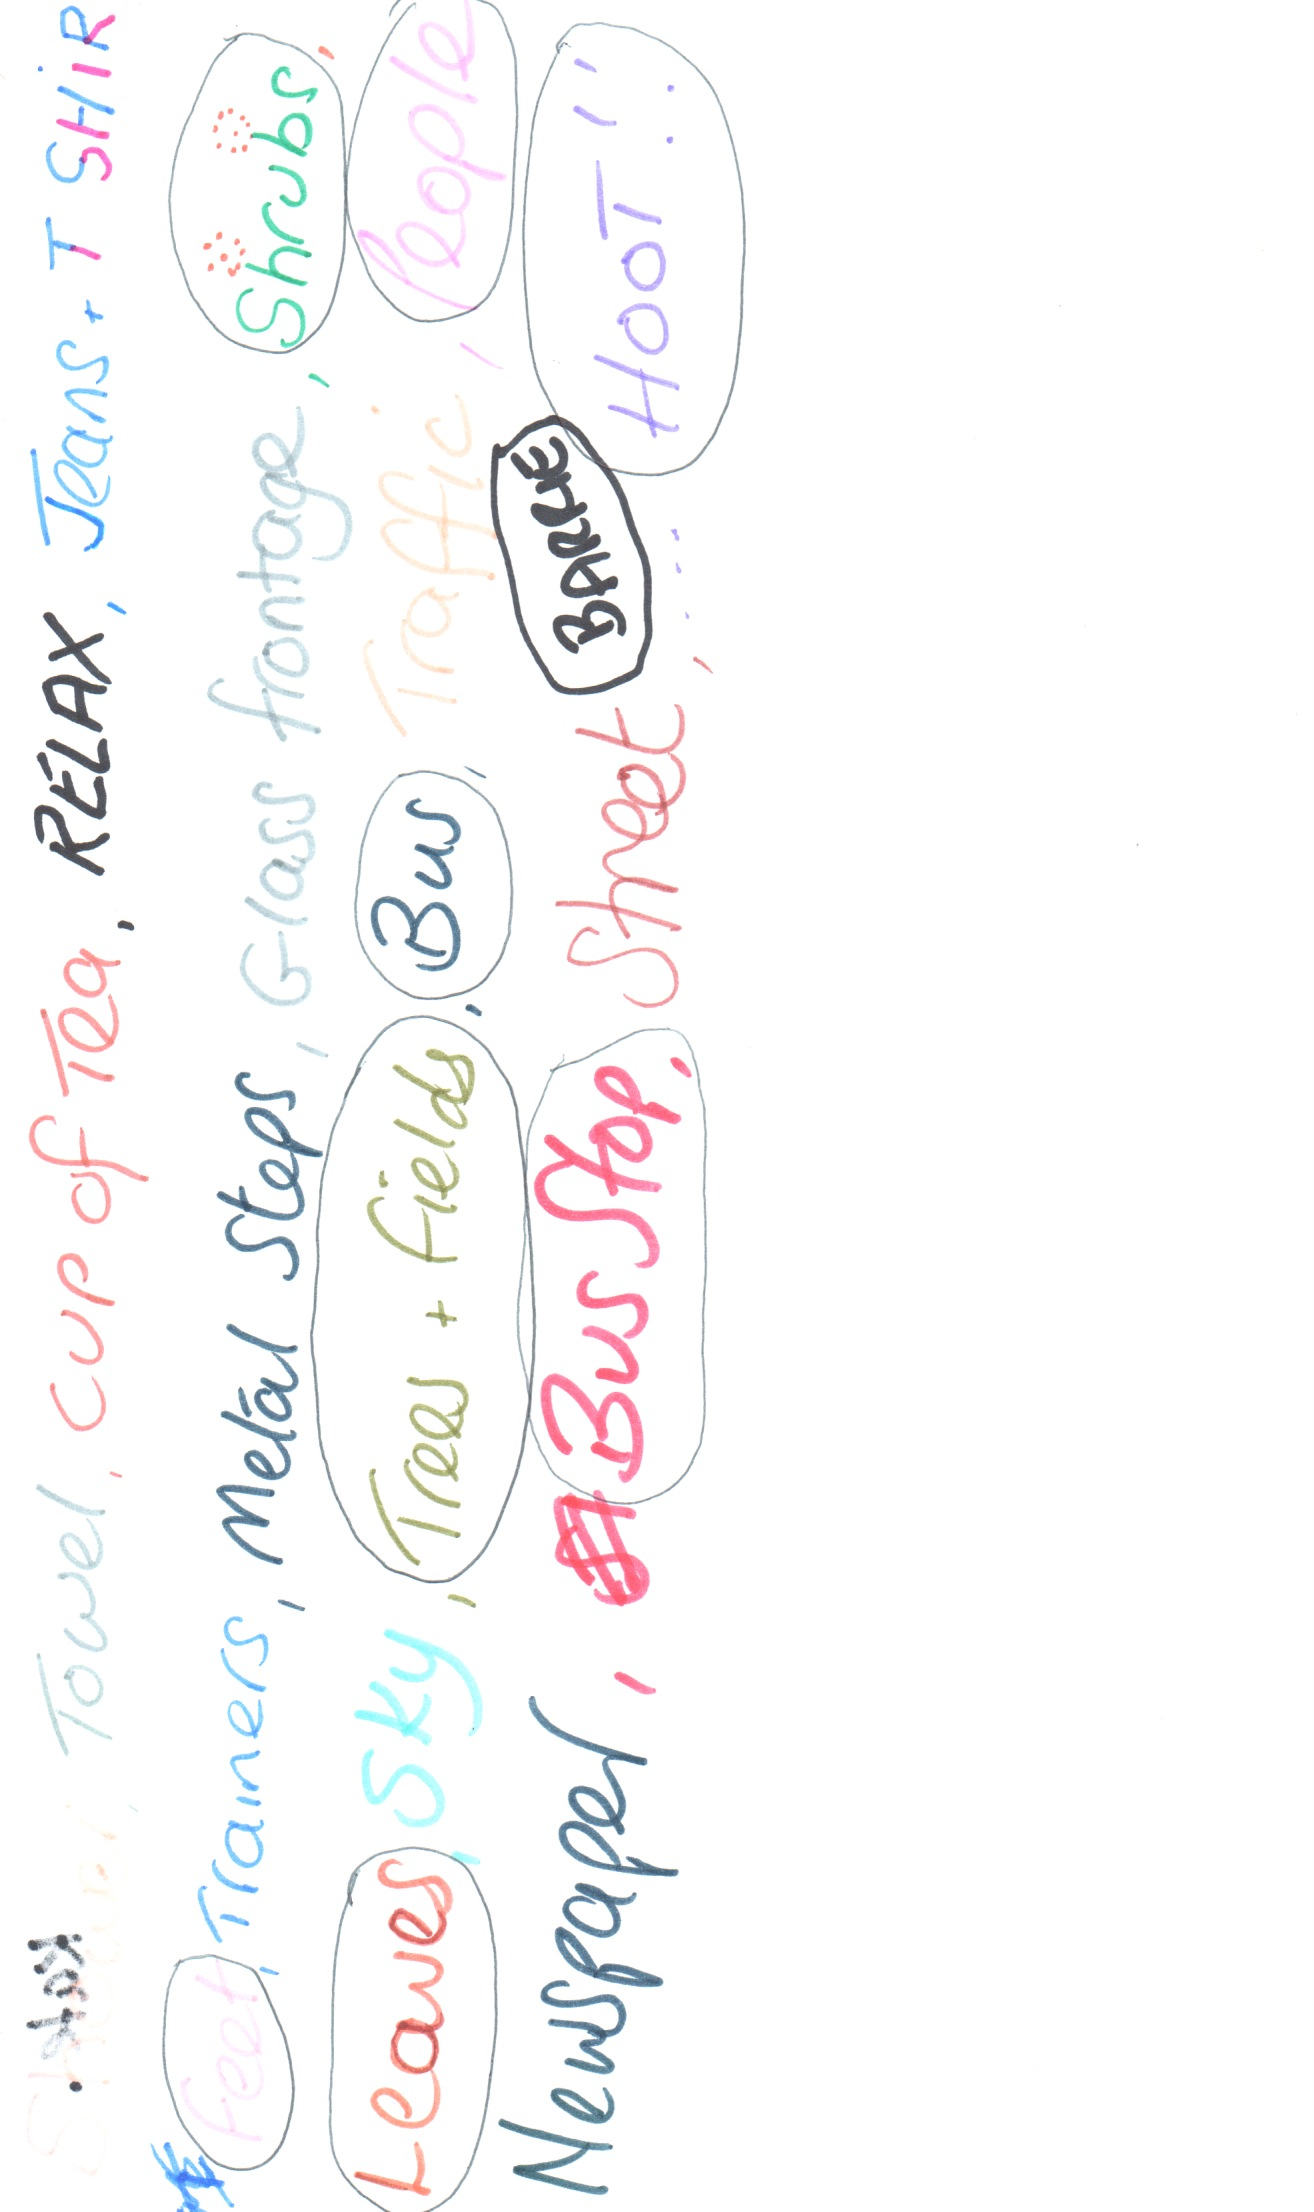 Shower, Towel, Cup of Tea, RELAX, Jeans + T SHIR
Feet, Trainers, Metal Steps, Glass frontage, Shrubs,
Leaves, Sky, Trees + Fields, Bus, Traffic, People
Newspaper, Bus Stop, Street, ... HOOT!!